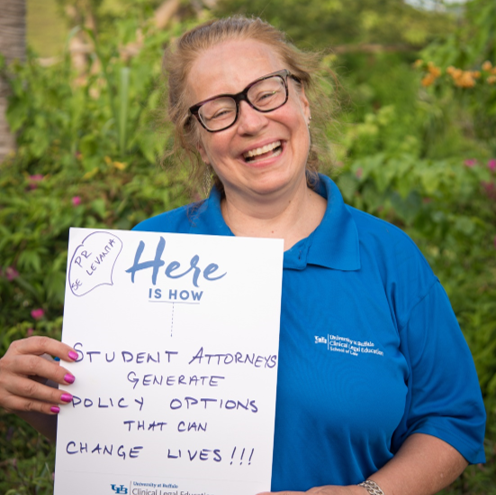 PR
SE LEVANTA
Here
IS HOW
STUDENT ATTORNEYS
GENERATE
POLICY OPTIONS
THAT CAN
CHANGE LIVES!!!
UB University at Buffalo
Clinical Legal Education
UB University at Buffalo
Clinical Legal Education
School of Law